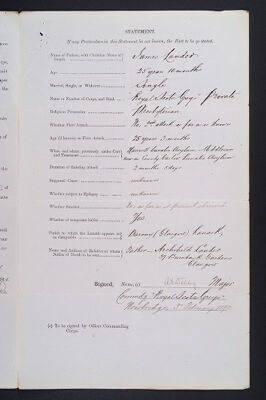 STATEMENT.
If any Particulars in this Statement be not known, the Fact to be so stated.
Name of Patient, with Christian Name at length James Lauder
Age 25 years 10 months
Married, Single, or Widower Single
Name or Number of Corps, and Rank Royal Scots Greys Private
Religious Persuasion Presbyterian
Whether First Attack No. 2nd attack as far as is known
Age (if known) on First Attack 25 years 3 months
When and where previously under Care and Treatment Lunatic Asylum
Lunatic Asylum
Duration of Existing Attack 2 months 5 days
Supposed Cause unknown
Whether subject to Epilepsy unknown
Whether Suicidal
Whether of temperate habits Yes
Parish to which the Lunatic appears to be chargeable Barony (Glasgow) Lanark
Name and Address of Relatives to whom Notice of Death to be sent Father Archibald Lauder
Gardens
Glasgow
Signed, Name (c) Major
Commdg Royal Scots Greys
Newbridge, February
(c) To be signed by Officer Commanding Corps.